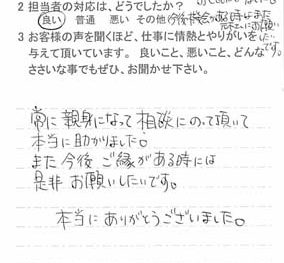 2 担当者の対応は、どうでしたか？
良い 普通 悪い その他 今後機会がある時はまた
お願い
3 お客様の声を聞くほど、仕事に情熱とやりがいを
与えて頂いています。良いこと、悪いこと、どんな
ささいな事でもぜひ、お聞かせ下さい。
常に親身になって相談にのって頂いて
本当に助かりました。
また今後ご縁がある時には
是非お願いしたいです。
本当にありがとうございました。